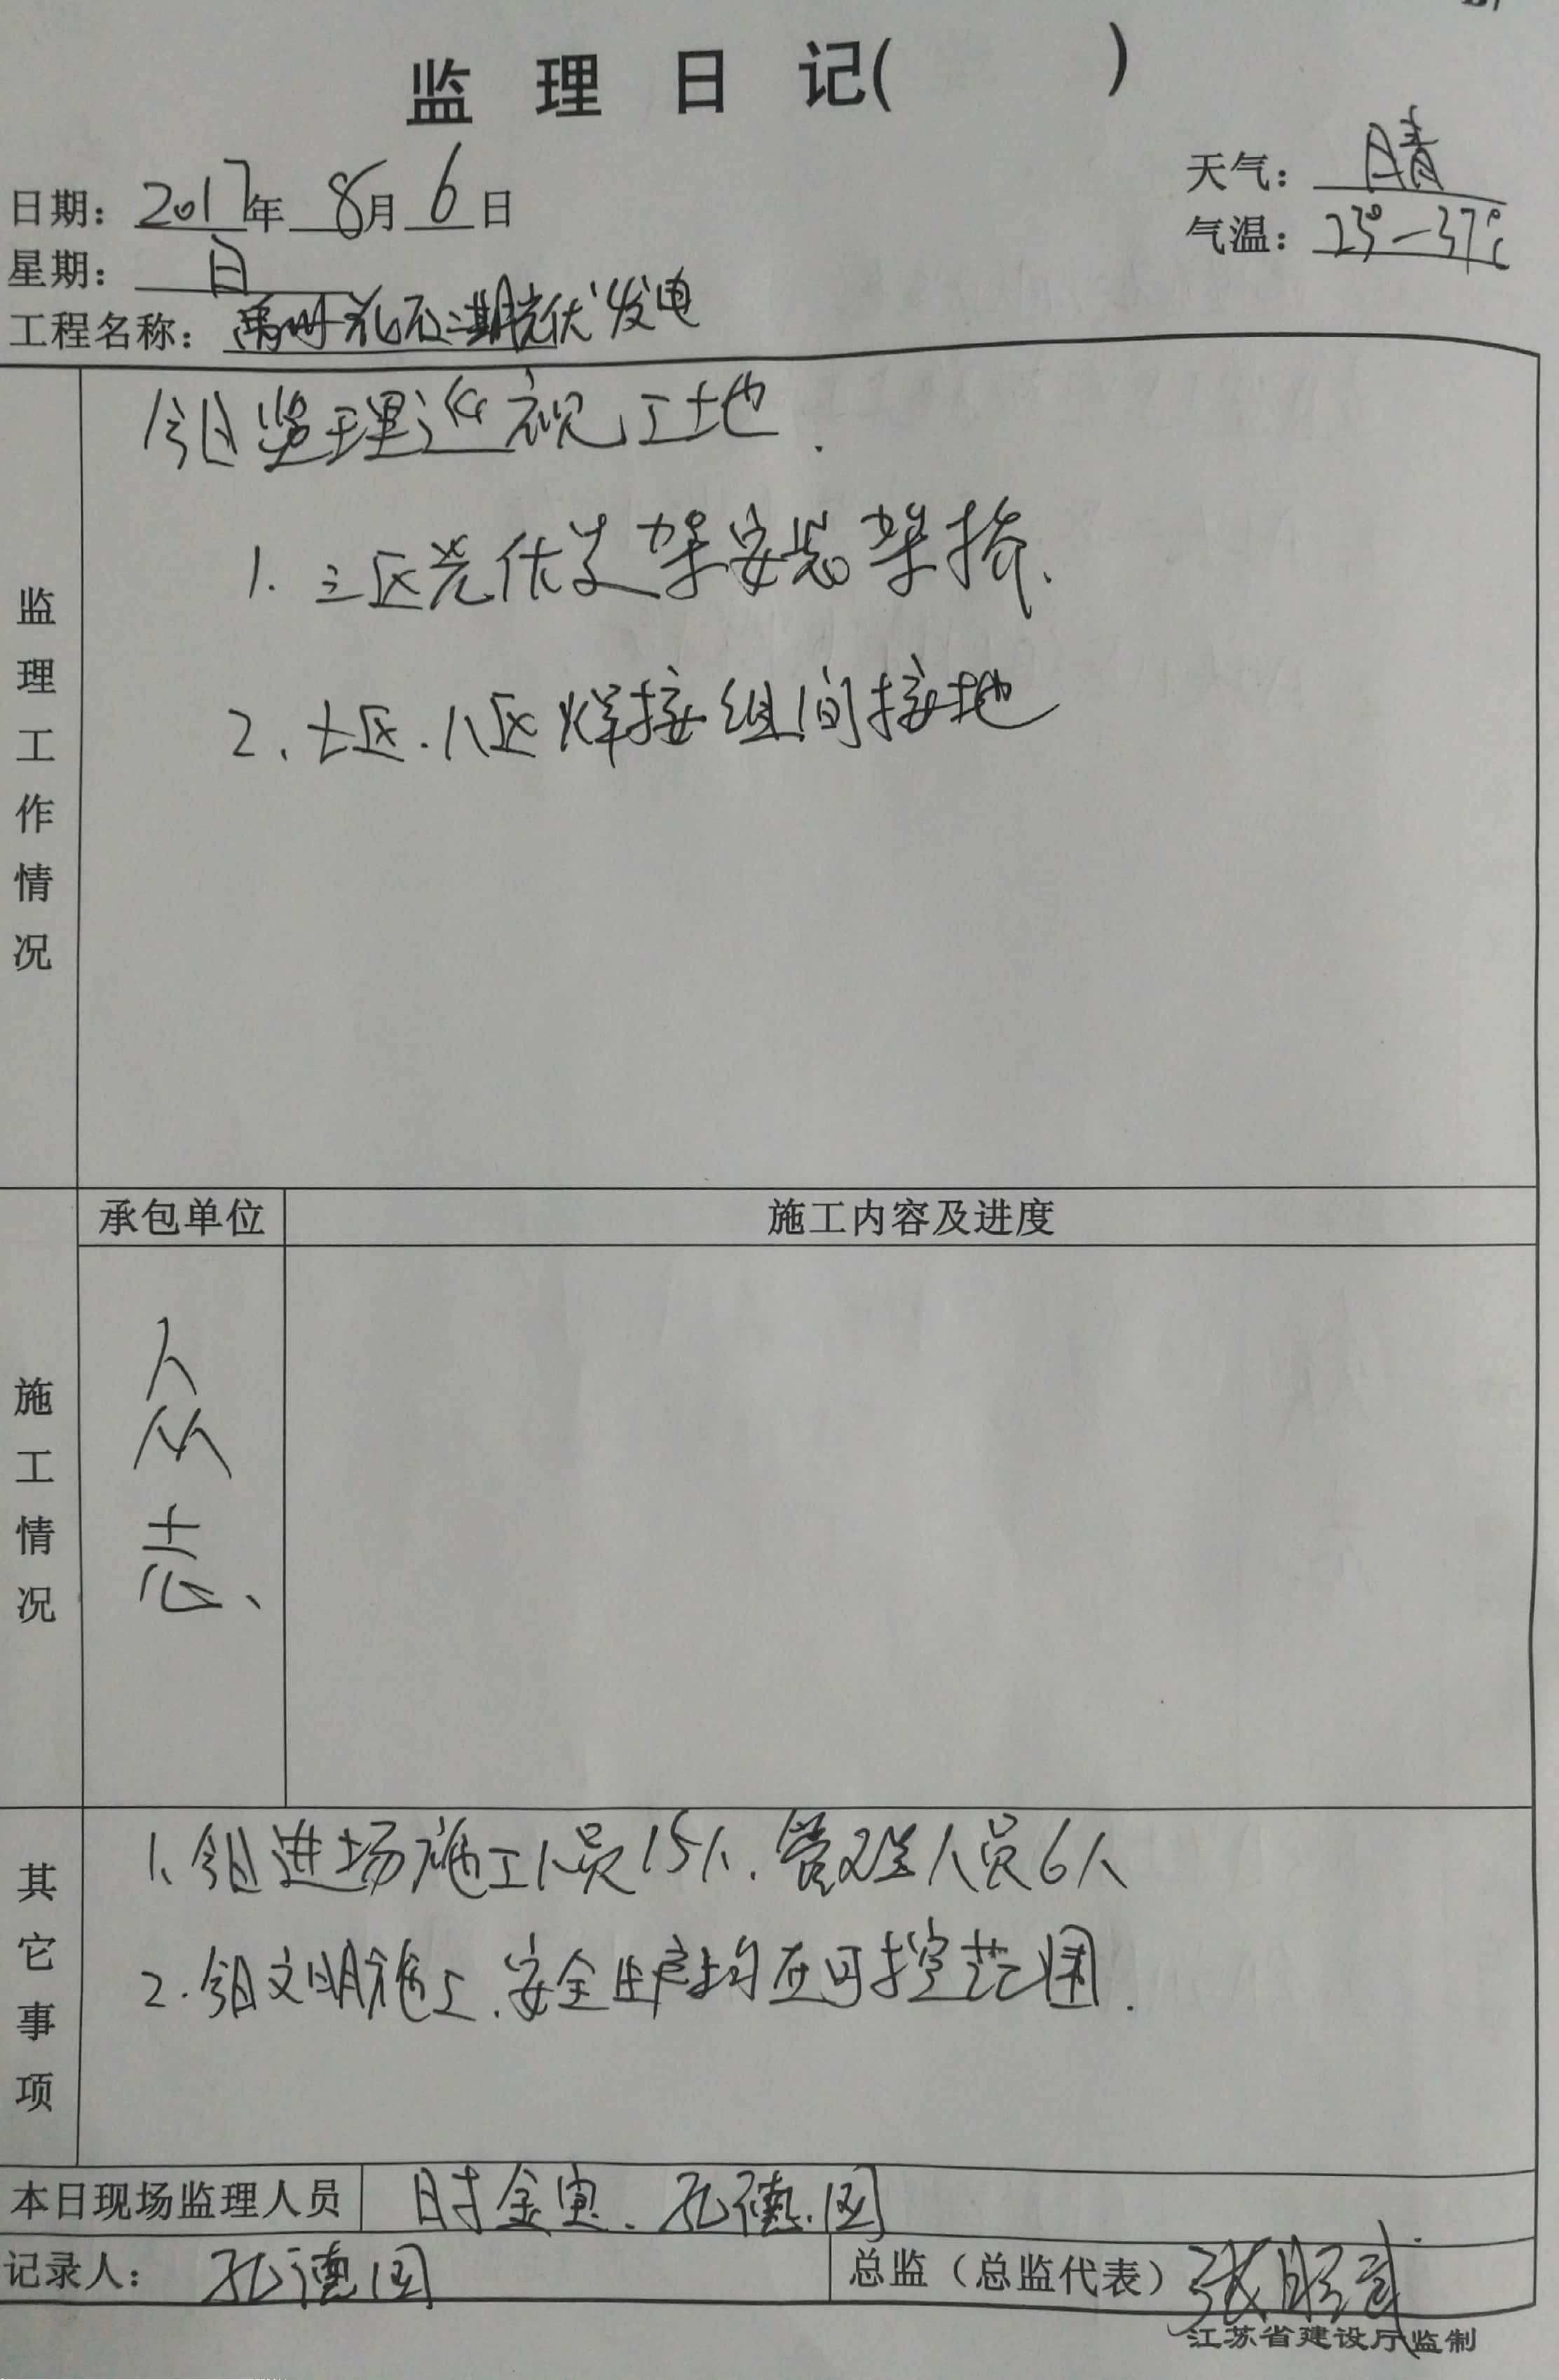 监理日记( )
日期: 2017年 8月 6日
天气: 晴
星期: 日
气温: 23°—37℃
工程名称: 禹州花石二期光伏发电
监理工作情况
今日监理巡视工地.
1. 三区光伏支架安装架接、
2、七区.八区焊接组间接地
施工情况
承包单位
施工内容及进度
人
众
志、
其它事项
1、今日进场施工人员15人.管理人员6人
2.今日文明施工.安全生产均在可控范围.
本日现场监理人员 时金寅、孔德因
记录人: 孔德因
总监(总监代表) 张
江苏省建设厅监制